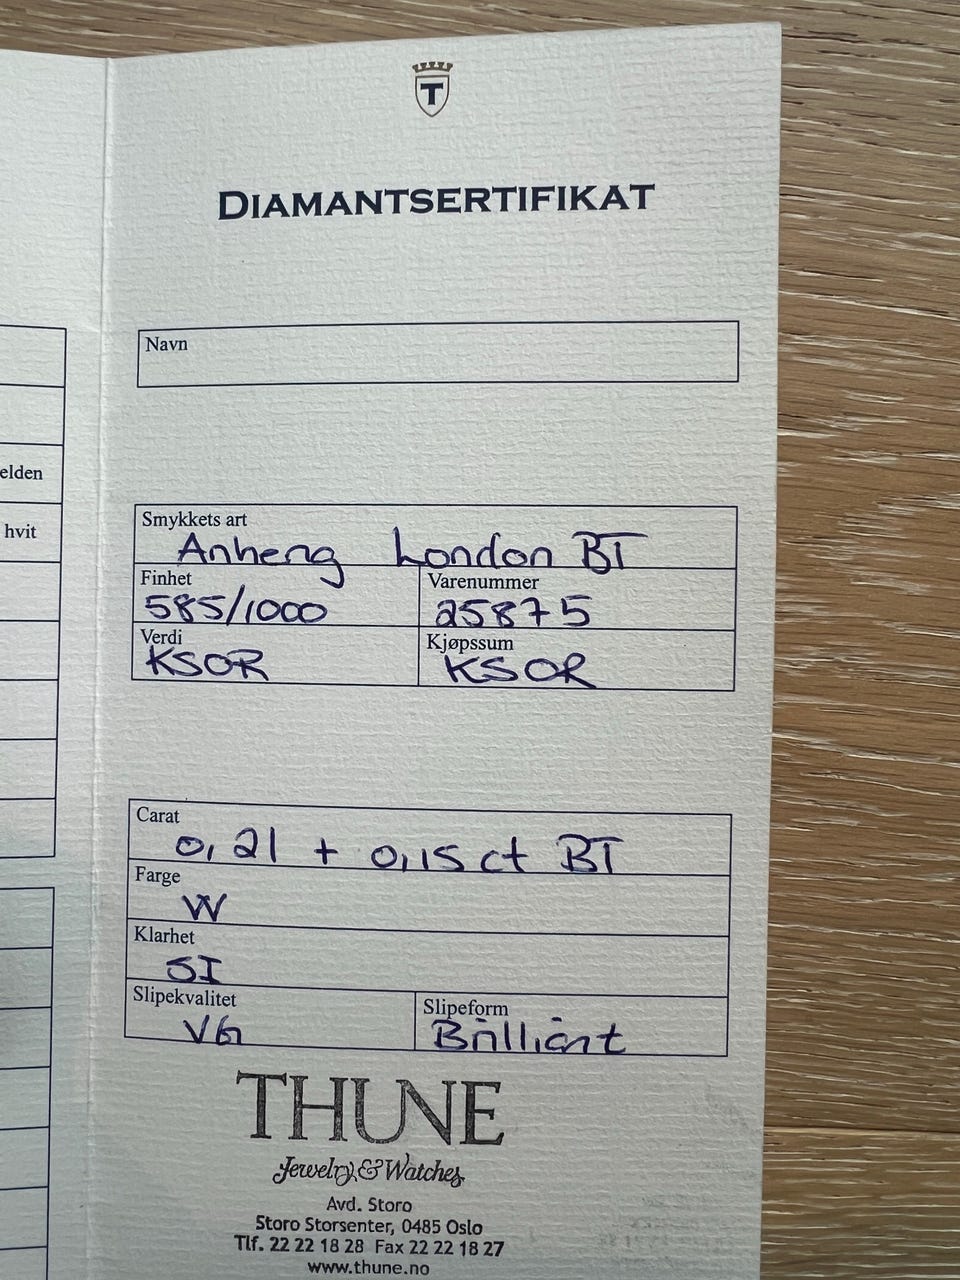 T
DIAMANTSERTIFIKAT
Navn
elden
hvit
Smykkets art
Anheng London BT
Finhet
585/1000
Varenummer
25875
Verdi
KSOR
Kjøpssum
KSOR
Carat
0,21 + 0,15 ct BT
Farge
W
Klarhet
SI
Slipekvalitet
VG
Slipeform
Brilliant
THUNE
Jewelry & Watches
Avd. Storo
Storo Storsenter, 0485 Oslo
Tlf. 22 22 18 28 Fax 22 22 18 27
www.thune.no